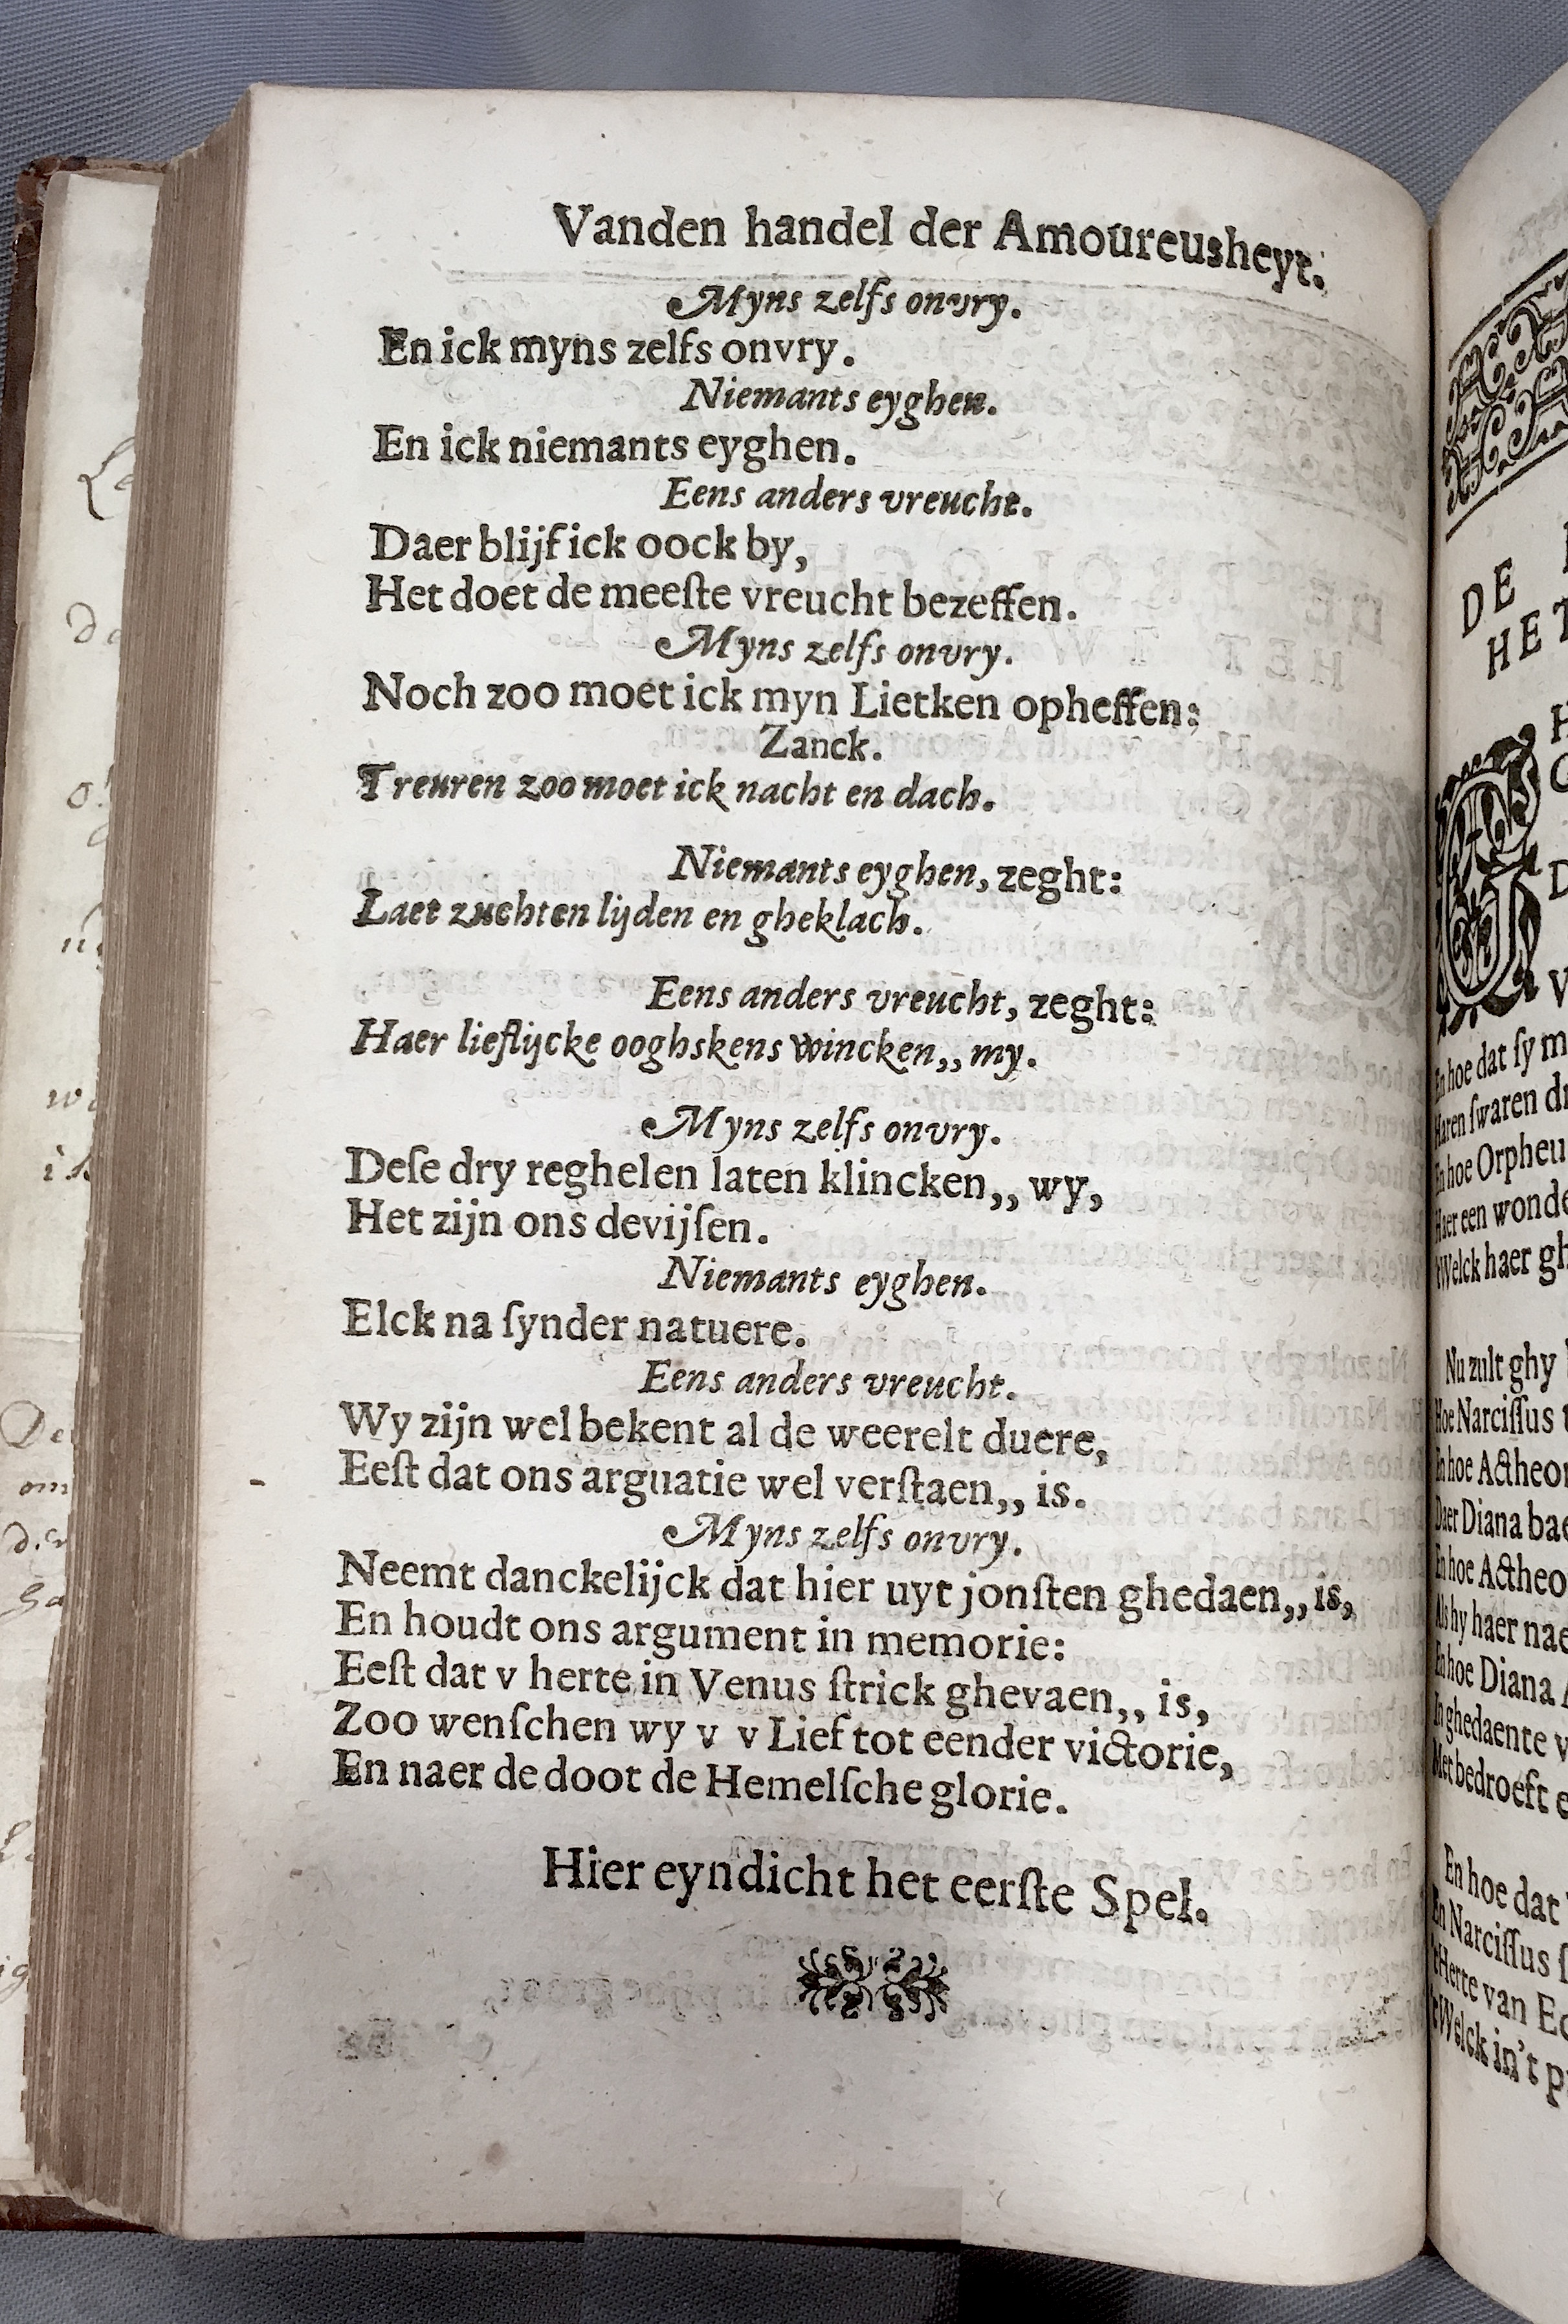 Vanden handel der Amoureusheyt.
Myns zelfs onvry.
En ick myns zelfs onvry.
Niemants eyghen.
En ick niemants eyghen.
Eens anders vreucht.
Daer blijf ick oock by,
Het doet de meeſte vreucht bezeffen.
Myns zelfs onvry.
Noch zoo moet ick myn Lietken opheffen:
Zanck.
Treuren zoo moet ick nacht en dach.
Niemants eyghen, zeght:
Laet zuchten lijden en gheklach.
Eens anders vreucht, zeght:
Haer lieflijcke ooghskens wincken,, my.
Myns zelfs onvry.
Deſe dry reghelen laten klincken,, wy,
Het zijn ons devijſen.
Niemants eyghen.
Elck na ſynder natuere.
Eens anders vreucht.
Wy zijn wel bekent al de weerelt duere,
Eeſt dat ons arguatie wel verſtaen,, is.
Myns zelfs onvry.
Neemt danckelijck dat hier uyt jonſten ghedaen,, is,
En houdt ons argument in memorie:
Eeſt dat v herte in Venus ſtrick ghevaen,, is,
Zoo wenſchen wy v v Lief tot eender victorie,
En naer de doot de Hemelſche glorie.
Hier eyndicht het eerſte Spel.
DE
HET
En hoe dat ſy
Haren ſwaren
En hoe Orpheu
Haer een wonde
'tWelck haer
Nu zult ghy
Hoe Narciſſus
En hoe Actheo
Daer Diana
En hoe Actheo
Als hy haer
En hoe Diana
In ghedaente
Met bedroeft
En hoe dat
En Narciſſus
'tHerte van
'tWelck in't